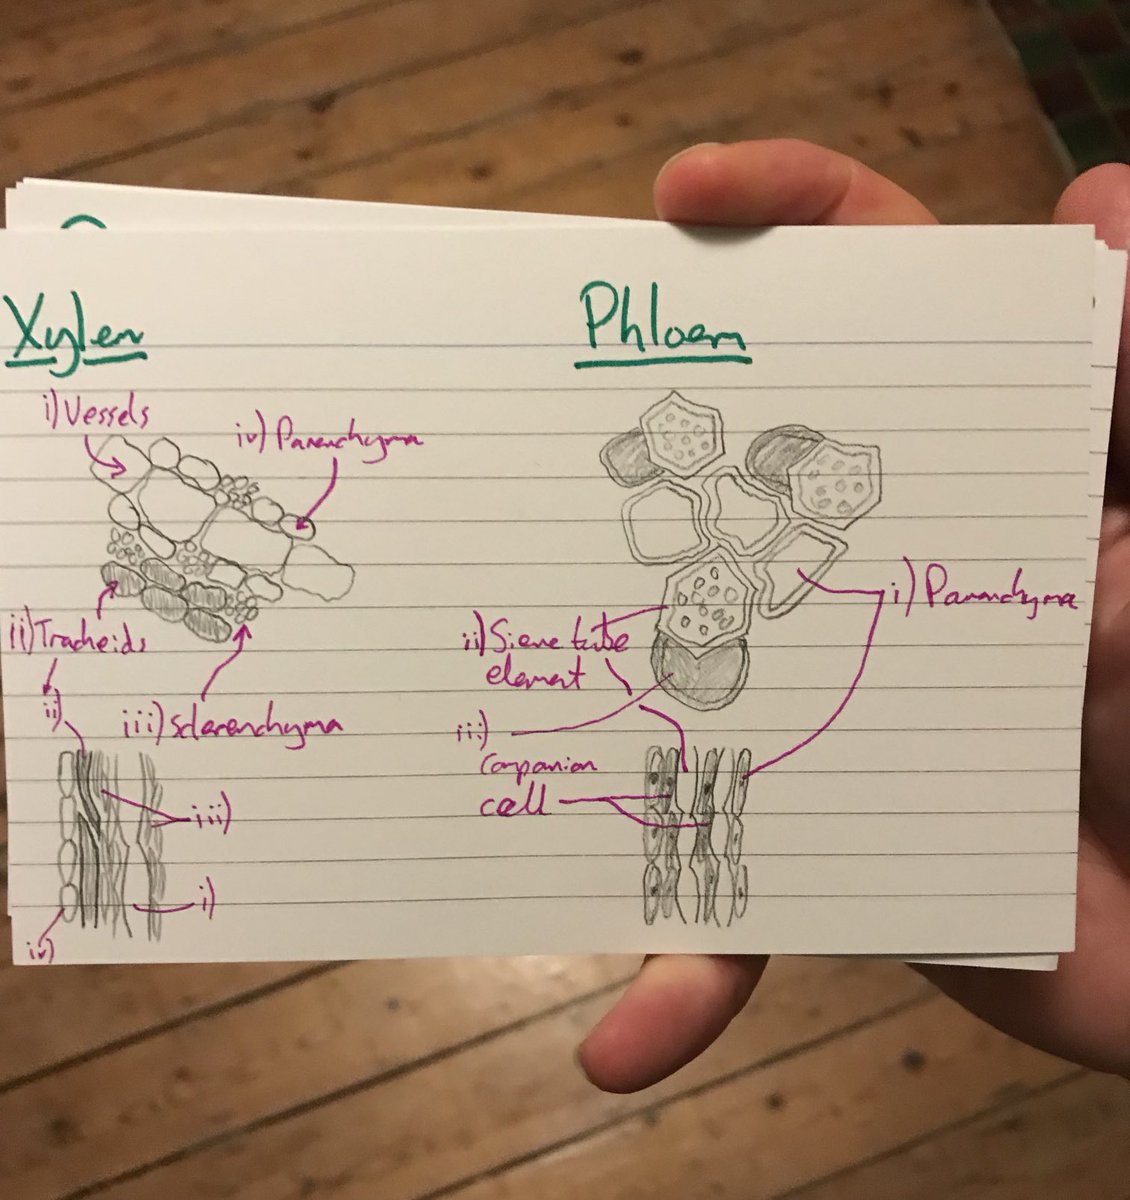 Xylem
Phloem
i) Vessels
iv) Parenchyma
i) Parenchyma
ii) Tracheids
ii) Sieve tube
element
ii)
iii) Sclerenchyma
iii)
Companion
cell
iii)
i)
iv)